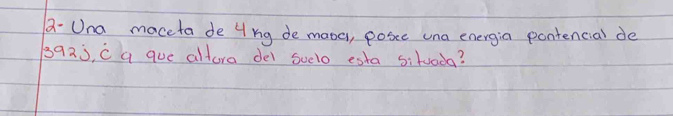 2- Una maceta de 4 kg de masa, posee una energia pontencial de
392j, ¿ a que altura del suelo esta situada?